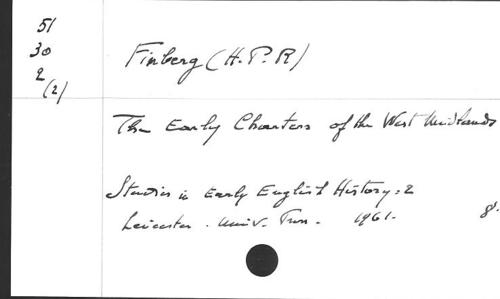 51
30
2
(2)
Finberg (H.P.R)
The Early Charters of the West Midlands
Studies in Early English History: 2
Leicester. Univ. Press. 1961. 8.